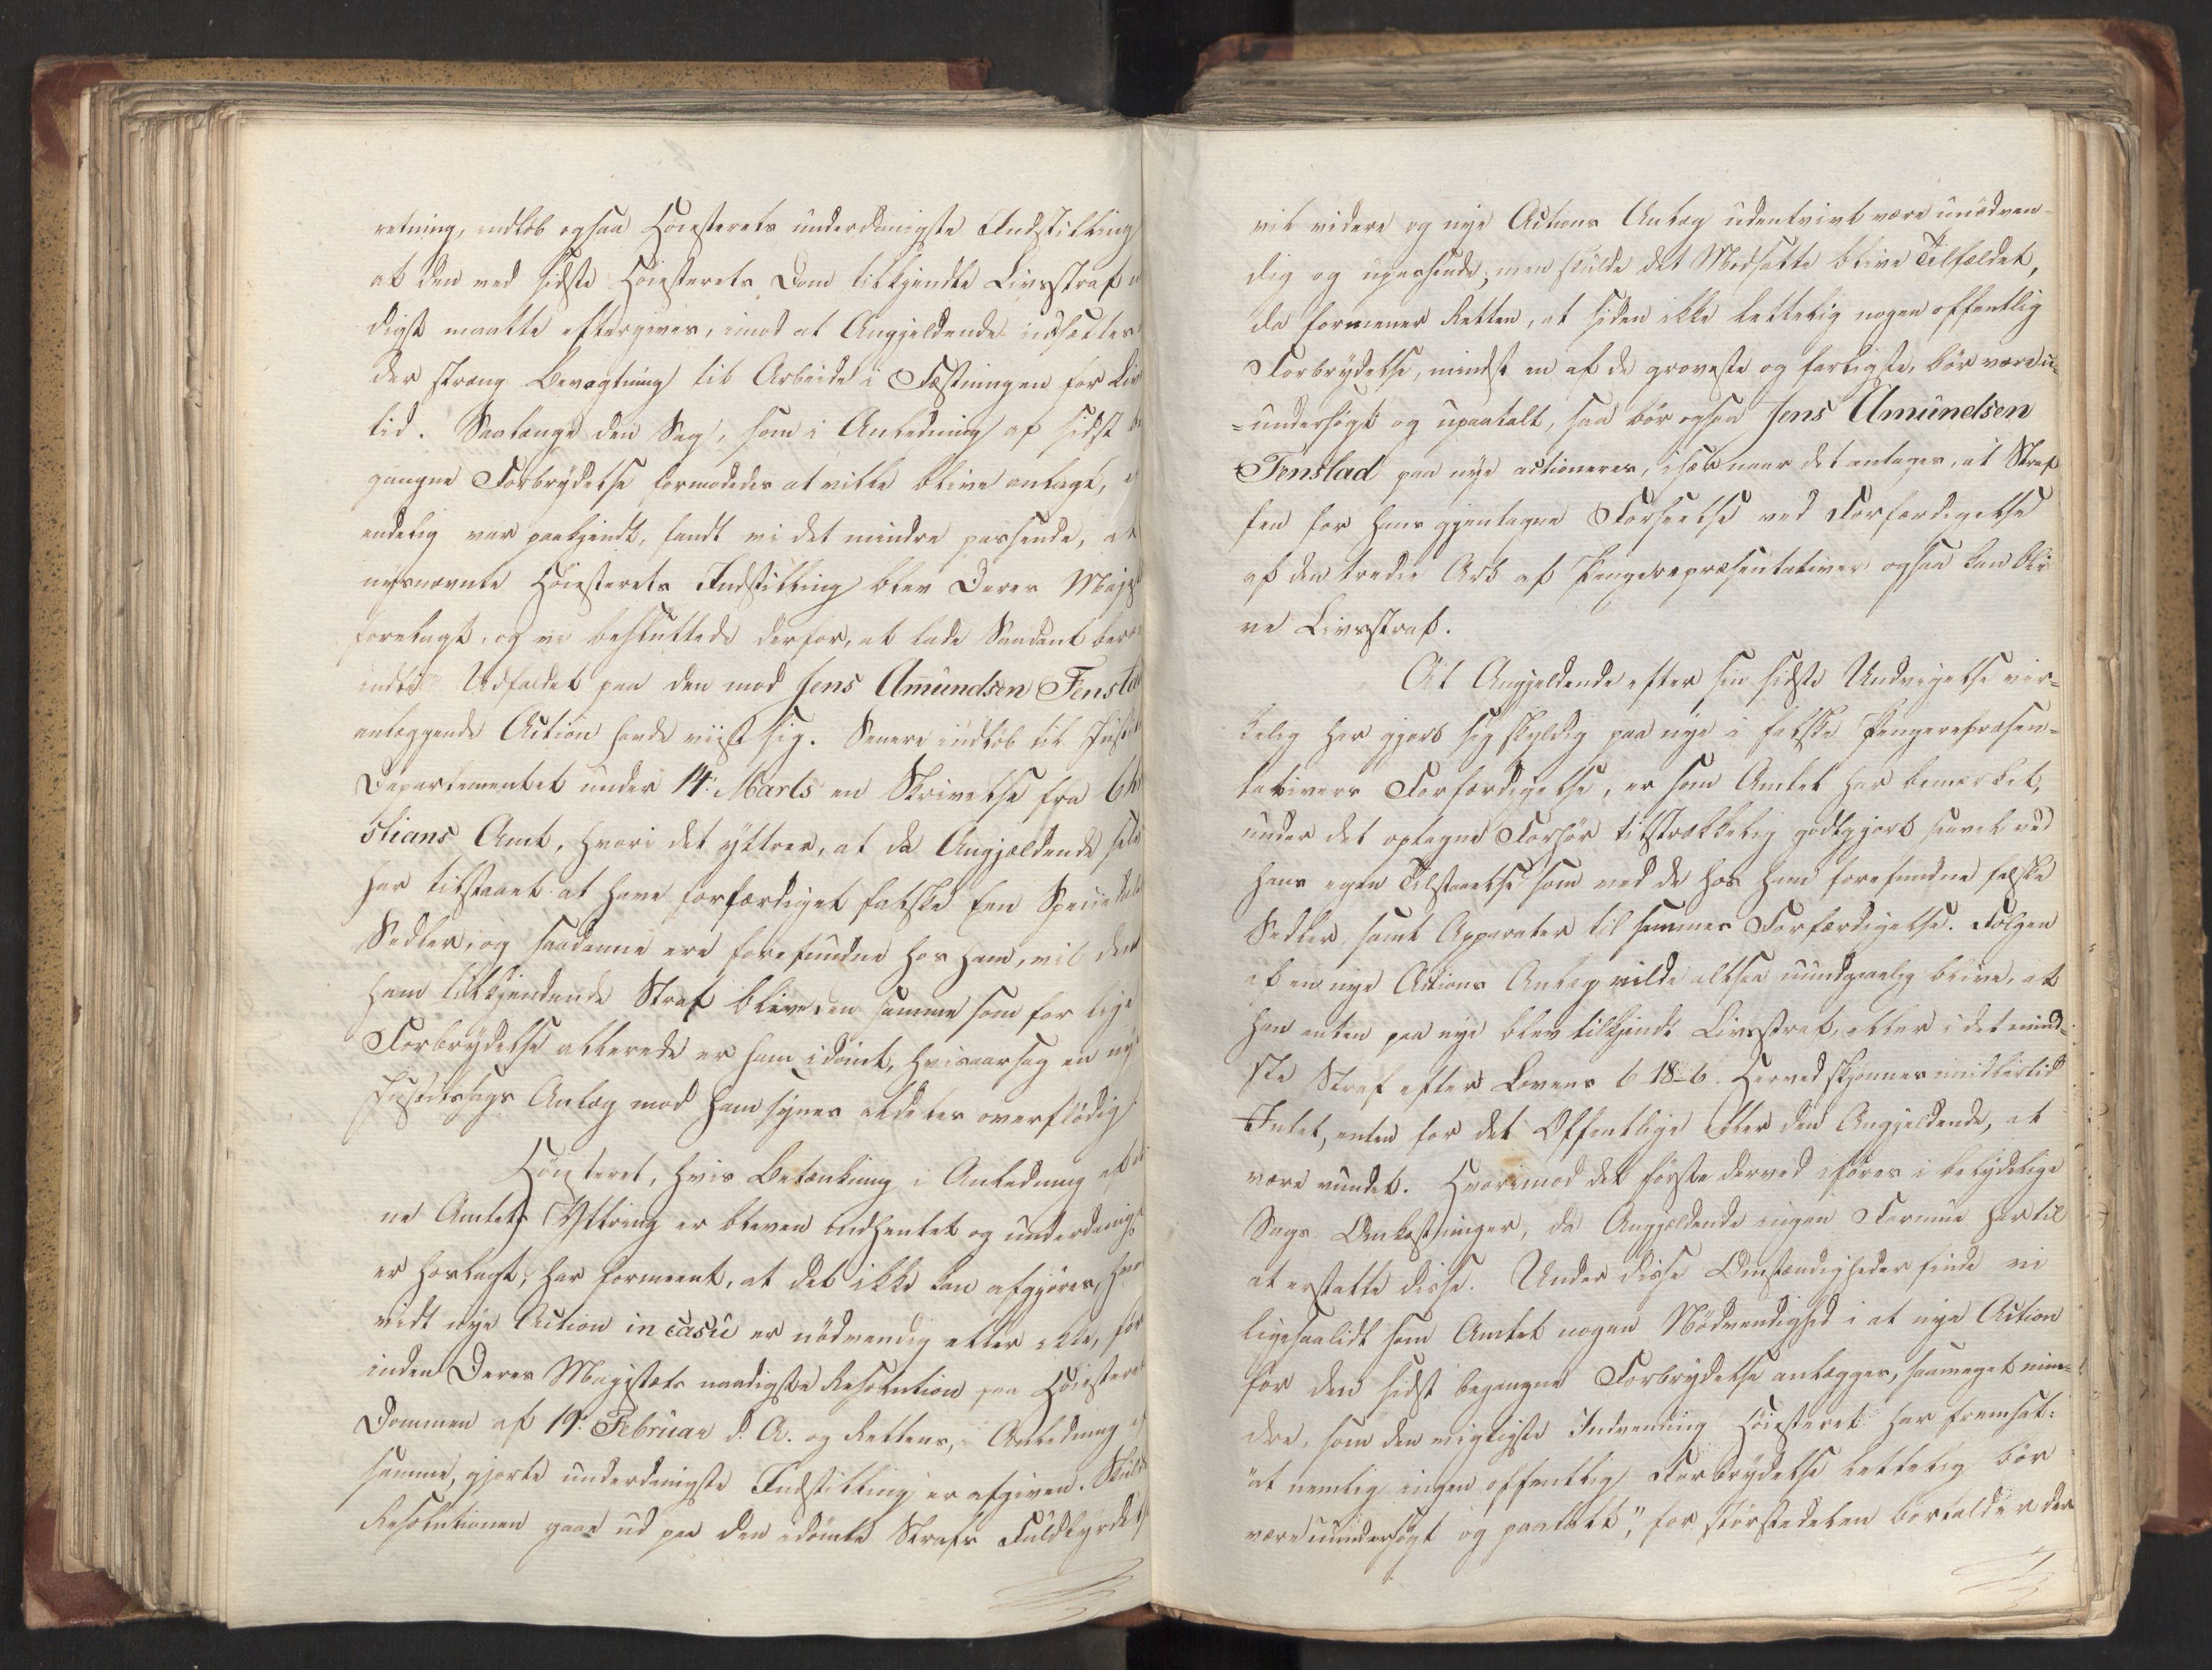 retning, indløb ogsaa Høiesterets underdanigste Indstilling
at den ved sidste Høiesterets Dom tilkjendte Livsstraf
digst maatte eftergives, imod at Angjeldende indsættes
der streng Bevogtning til Arbeide i Fæstningen for Livs
tid. Saalænge den Sag, som i Anledning af sidst be
gangne Forbrydelse formodedes at ville blive anlagt, ei
endelig var paakjendt, fandt vi det mindre passende, at
nysnævnte Høiesterets Indstilling blev Deres Majst
forelagt, og vi besluttede derfor, at lade Saadant bero
indtil Udfaldet paa den mod Jens Amundsen Fenstad
anlæggende Action havde viist sig. Senere indløb til Justits
Departementet under 14: Marts en Skrivelse fra Chri
stians Amt, hvori det yttrer, at da Angjældende selv
har tilstaaet at have forfærdiget falske Een Speciedaler
Sedler, og saadanne ere forefundne hos ham, vil den
ham tilkjendende Straf blive den samme som for lige
Forbrydelse allerede er ham idømt, hvisaarsag en ny
Justitssags Anlæg mod ham synes aldeles overflødig.
Høiesteret, hvis Betænkning i Anledning af den
ne Amtets Yttring er bleven indhentet og underdanigst
er hoslagt, har formeent, at det ikke kan afgjøres, hvor
vidt nye Action in casu er nødvendig eller ikke, før
inden Deres Majestæts naadigste Resolution paa Høiesterets
Dommen af 19: Februar d. A. og Rettens, i Anledning af
samme, gjorte underdanigste Indstilling er afgiven. Skulde
Resolutionen gaae ud paa den idømte Strafs Fuldbyrdelse
vil videre og nye Actions Anlæg udentvivl være unødven-
dig og upassende; men skulde det Modsatte blive Tilfældet,
da formener Retten, at siden ikke lettelig nogen offentlig
Forbrydelse, mindst en af de groveste og farligste, bør være u-
=undersøgt og upaatalt, saa bør ogsaa Jens Amundsen
Fenstad paa nye actioneres, især naar det antages, at Straf
fen for hans gjentagne Forseelse ved Forfærdigelse
af den tredie Art af Pengerepræsentativer ogsaa kan bli-
ve Livsstraf.
At Angjeldende efter sin sidste Undvigelse vir-
kelig har gjort sig skyldig paa nye i falske Pengerepræsen-
tativers Forfærdigelse, er som Amtet har bemærket,
under det optagne Forhør tilstrækkelig godtgjort saavel ved
hans egen Tilstaaelse som ved de hos ham forefundne falske
Sedler, samt Apparater til sammes Forfærdigelse. Følgen
af en nye Actions Anlæg vilde altsaa uundgaaelig blive, at
han enten paa nye blev tilkjendt Livsstraf, eller i det mind-
ste Straf efter Lovens 6-18-6. Herved skjønnes imidlertid
Intet, enten for det Offentlige eller den Angjeldende, at
være vundet. Hvorimod det første derved iføres i betydelige
Sags Omkostninger, da Angjældende ingen Formue har til
at erstatte disse. Under disse Omstændigheder finde vi
ligesaalidt som Amtet nogen Nødvendighed i at nye Action
for den sidst begangne Forbrydelse anlægges, saameget min-
dre, som den vigtigste Indvending Høiesteret har fremsat:
"at nemlig ingen offentlig Forbrydelse lettelig bør
være uundersøgt og paatalt", for størstedelen bortfalder der